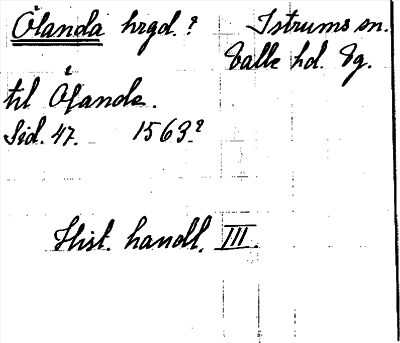 Ölanda hrgd.? Istrums sn.
Valle hd. Vg.
til Ölande.
Sid. 47. 1563?
Hist. handl. III.